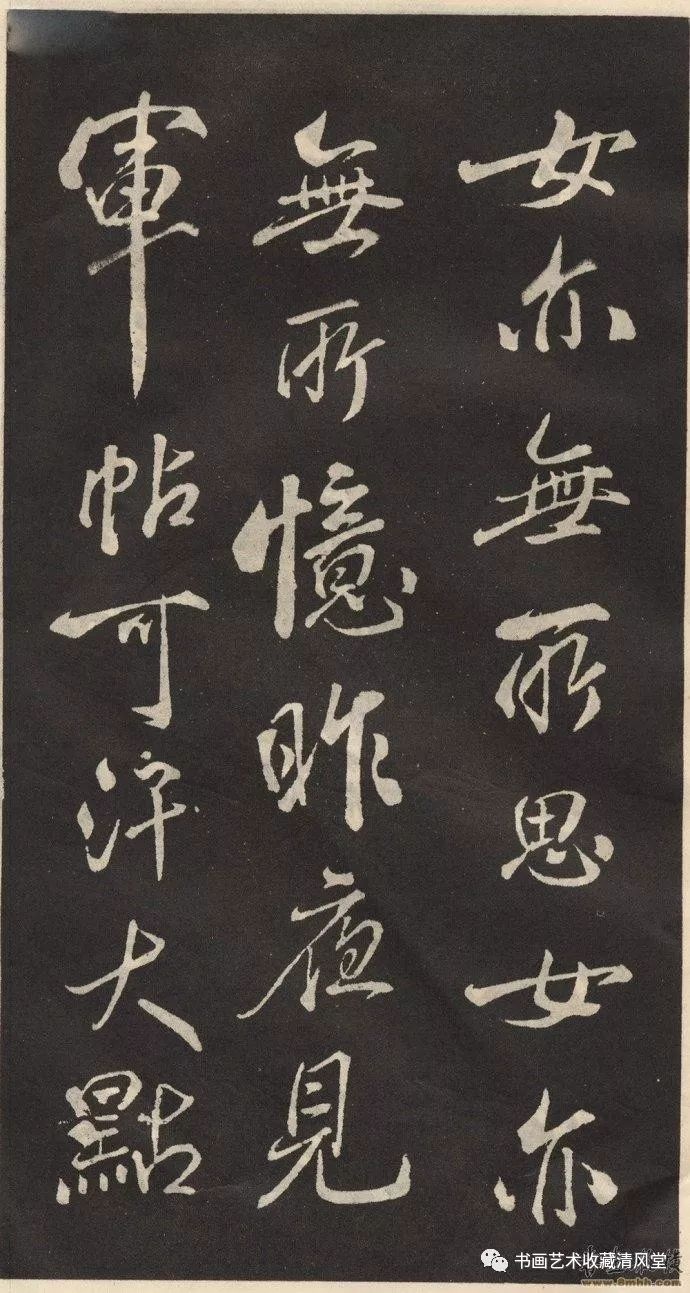 女亦無所思女亦
無所憶昨夜見
軍帖可汗大點
书画艺术收藏清风堂